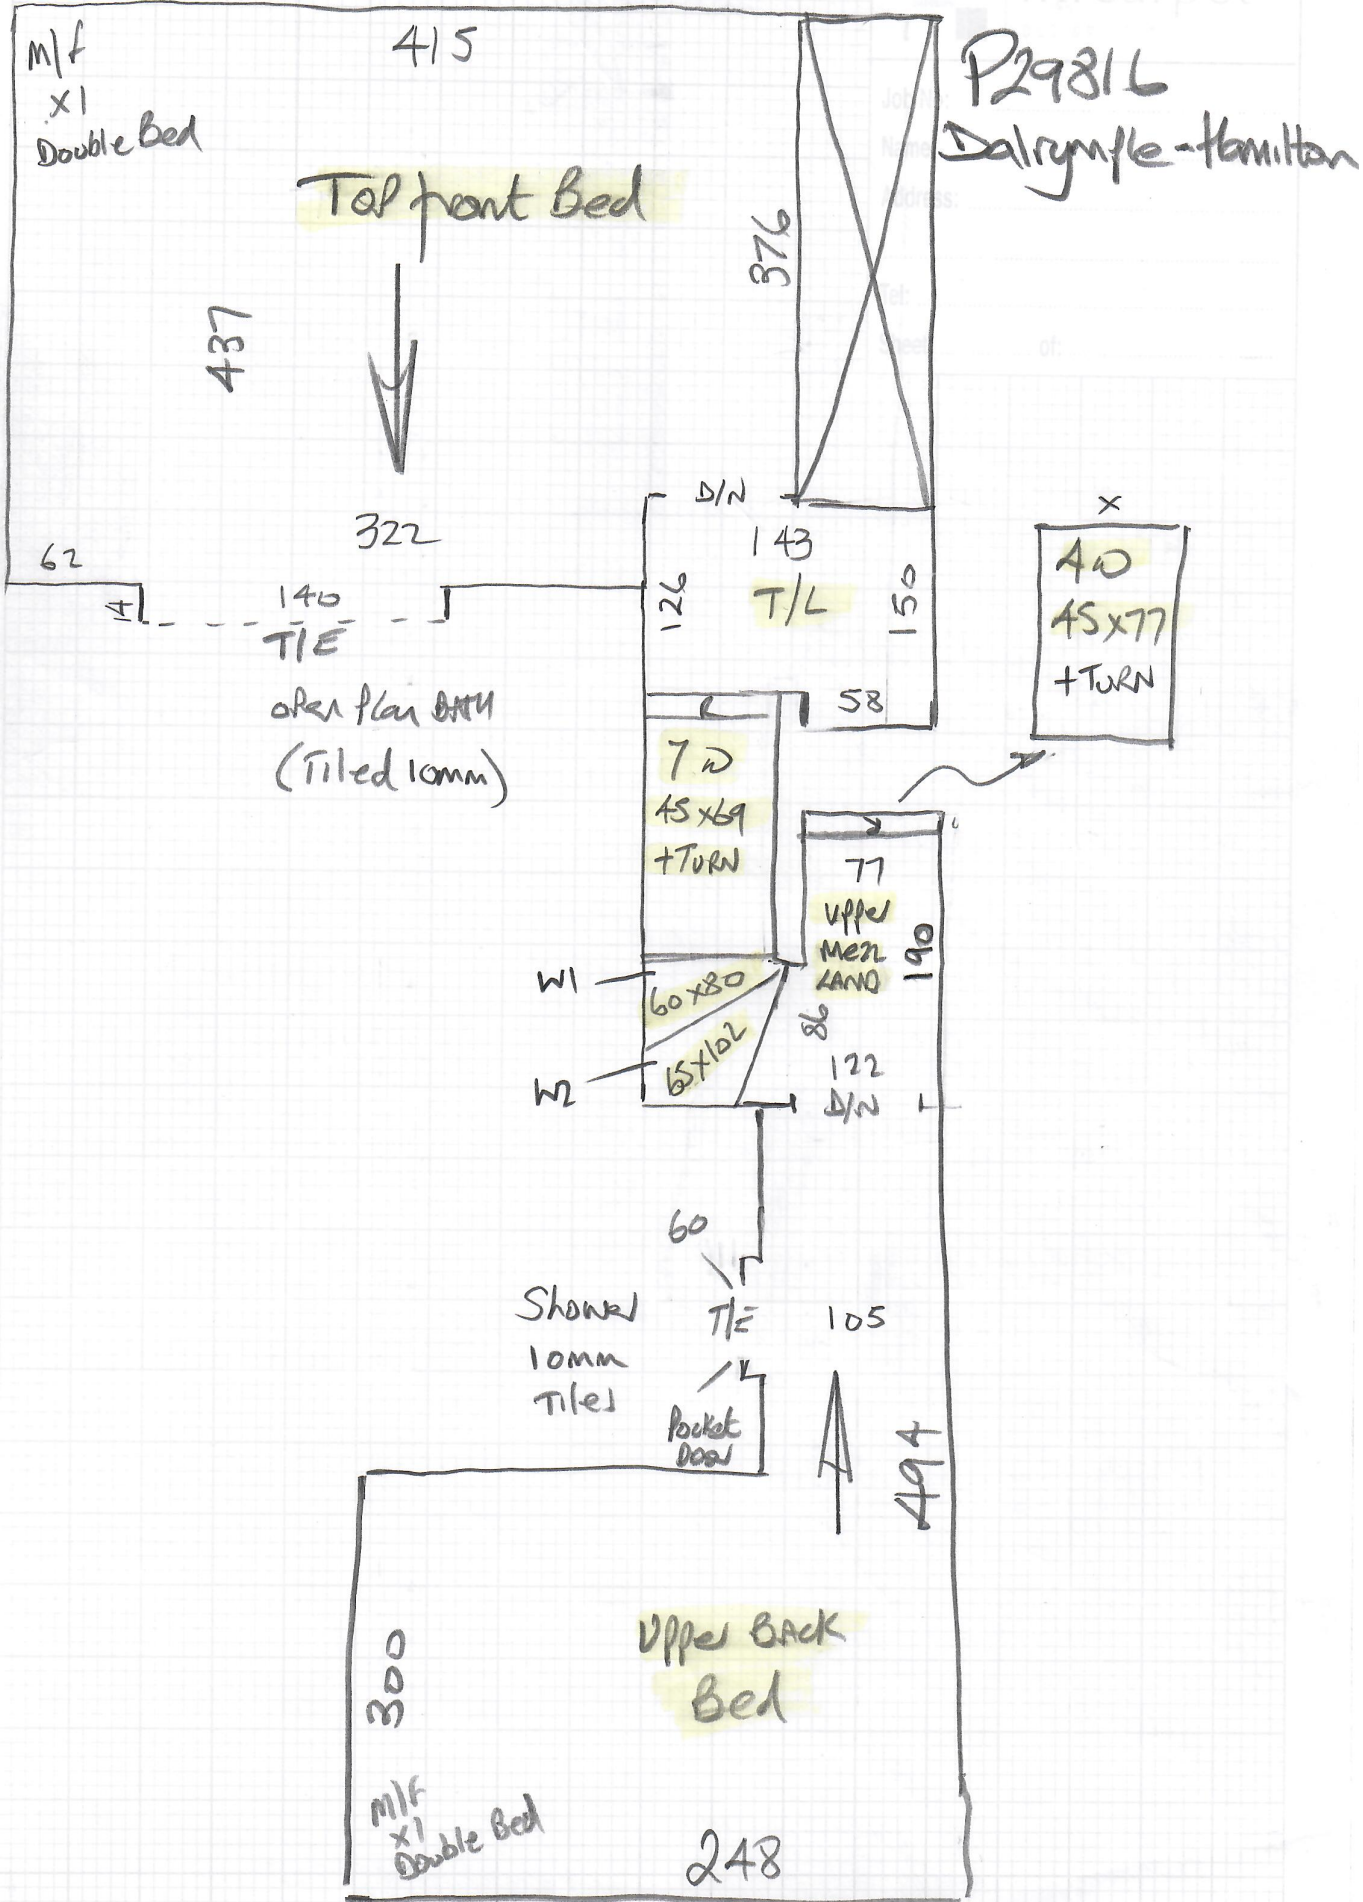 M/f
x1
Double Bed
415
P29816
Dalrymple-Hamilton
Job No:
Name
Address:
Tel:
Sheet
of:
Top front Bed
376
437
322
62
14
140
T/E
open plan BATH
(Tiled 10mm)
D/N
143
T/L
126
150
58
x
4W
45x77
+TURN
7W
45x69
+TURN
77
Upper
Mezz
LAND
190
W1
60x80
W2
65x102
86
122
D/N
60
Shower
10mm
Tiles
T/E
105
Pocket
Door
494
300
Upper BACK
Bed
M/F
x1
Double Bed
248